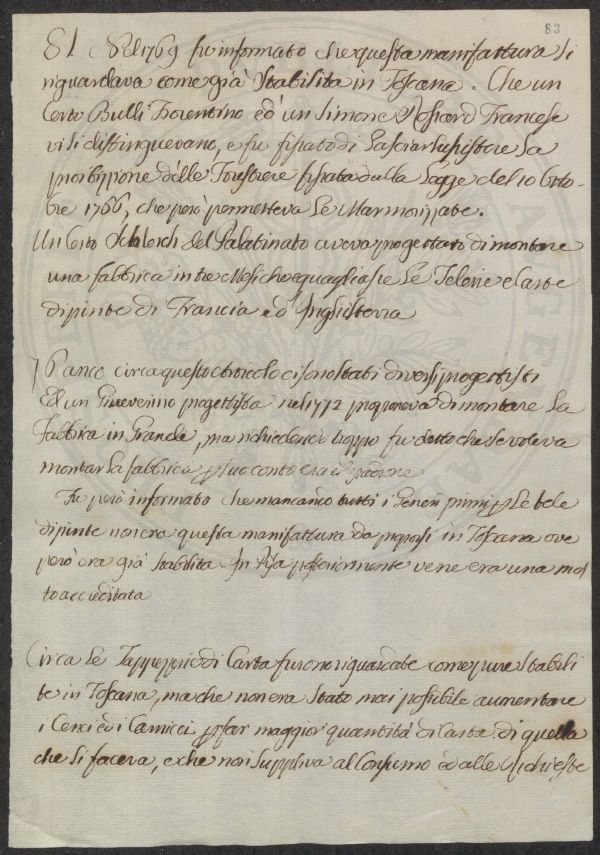 83
81 Nel 1769 fu informato che questa manifattura si
riguardava come già Stabilita in Toscana. Che un
Certo Bulli Fiorentino ed un Simone Francese
vi si distinguevano, e fu di Lasciar sussistere La
proibizione delle Forestiere fissata dalla Legge del 10 Otto-
bre 1766, che però permetteva Le Marmorizzate.
Un Certo del Palatinato aveva progettato di montare
una fabbrica in tre Mesi che eguagliasse Le Telerie e Carte
dipinte di Francia ed Inghilterra
76 anco circa questo articolo ci sono stati diversi progettisti
Ed un progettista nel 1772 proponeva di montare La
Fabbrica in Grande, ma richiedendo troppo fu detto che se voleva
montar La fabbrica p suo conto era il padrone
Fu però informato che mancando tutti i Generi primi p Le tele
dipinte non era questa manifattura da proporsi in Toscana ove
però era già stabilita. In Pisa posteriormente vene era una mol
to accreditata
Circa Le Tappezzerie di Carta furono riguardate come pure Stabili
te in Toscana, ma che non era Stato mai possibile aumentare
i Cenci ed i Carnicci p far maggior quantità di Carta di quella
che si faceva, e che non Suppliva al Consumo ed alle richieste